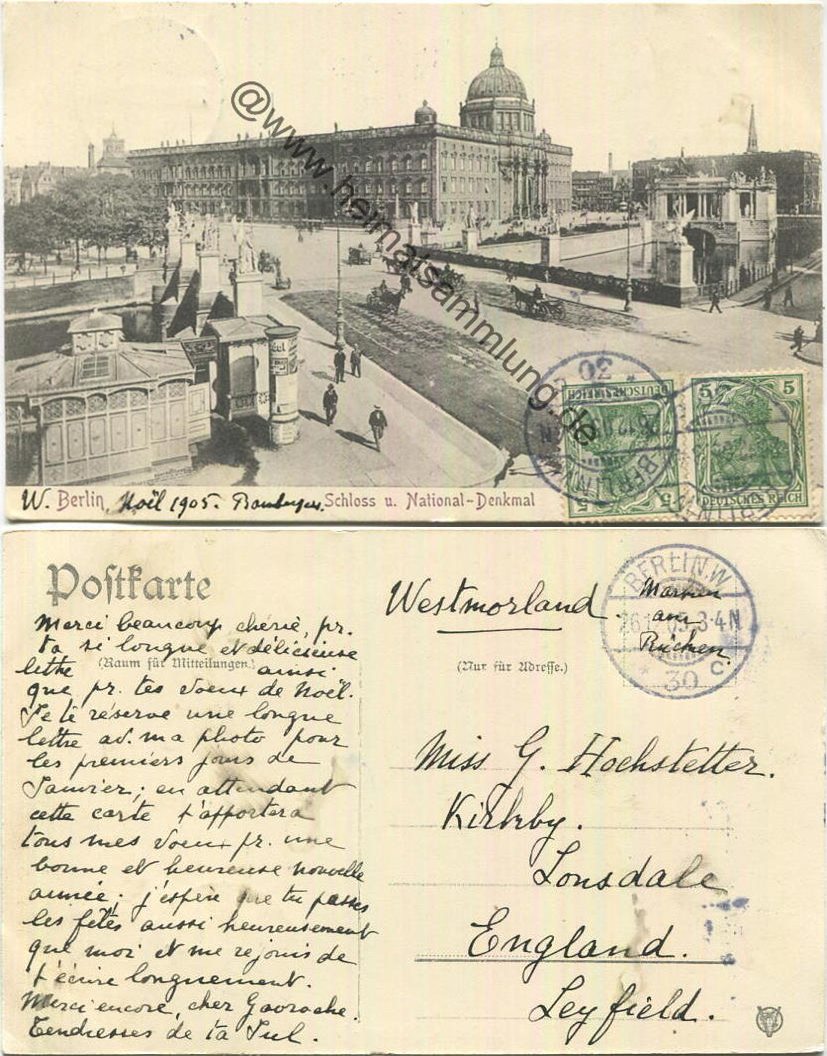 @www.heimatsammlung.de
W. Berlin, Noël 1905. Schloss u. National-Denkmal
DEUTSCHES REICH
5 5
5 5
DEUTSCHES REICH
BERLIN
30
Postkarte
Merci beaucoup chérie, pr.
ta si longue et délicieuse
lettre ainsi
(Raum für Mitteilungen.)
que pr. tes voeux de Noël.
Je te réserve une longue
lettre av. ma photo pour
les premiers jours de
Janvier; en attendant
cette carte t'apportera
tous mes voeux pr. une
bonne et heureuse nouvelle
année; j'espère que tu passes
les fêtes aussi heureusement
que moi et me rejouis de
t'écrire longuement.
Merci encore, cher Gavroche.
Tendresses de ta Jul.
Westmorland.
(Nur für Adresse.)
BERLIN.W
26.12.05.3-4N
* 30 c
Marken
am
Rücken.
Miss G. Hochstetter.
Kirkby.
Lonsdale
England.
Leyfield.